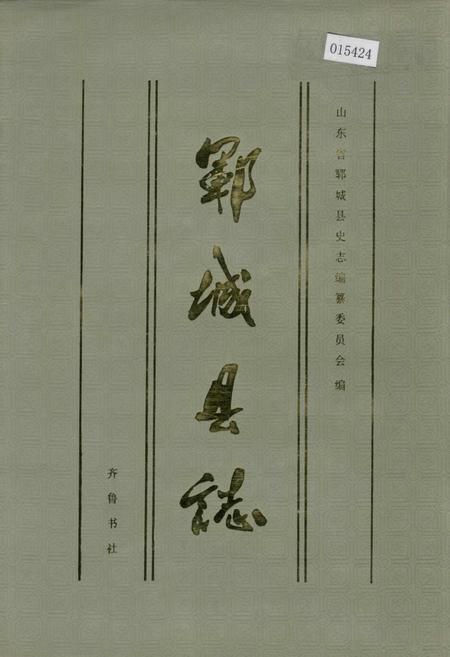 015424
山东省郓城县史志编纂委员会编
郓城县誌
齐鲁书社